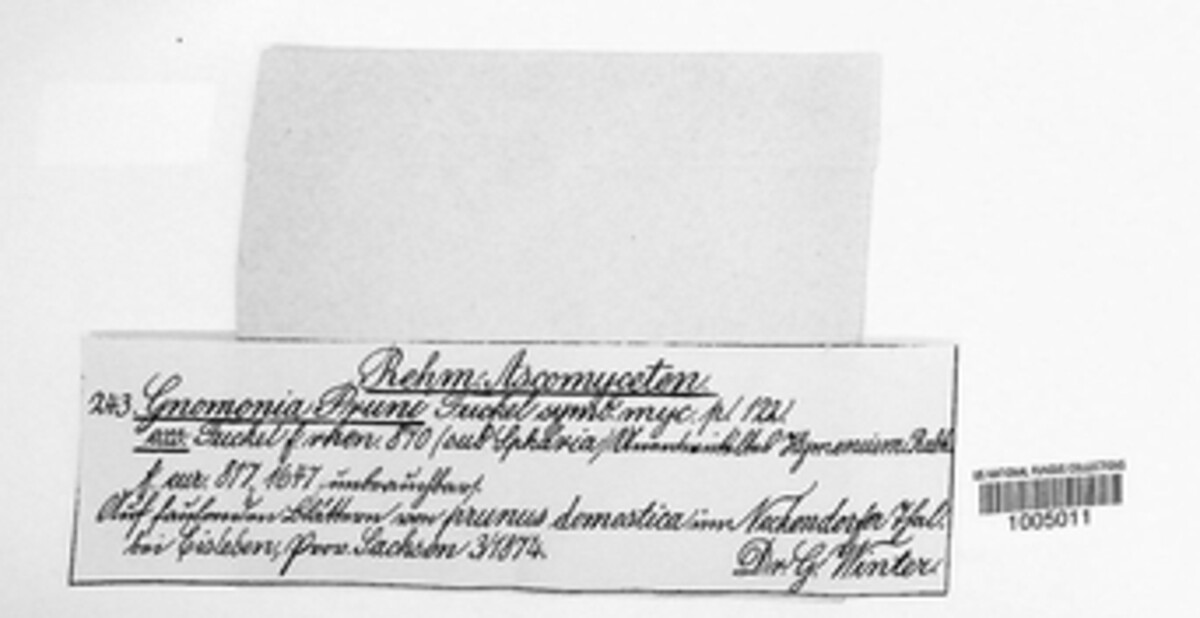 Rehm: Ascomyceten.
243. Gnomonia Pruni Fuckel symb. myc. p. 122.
exs. Fuckel f. rhen. 870 (sub Sphaeria) Hymenium. Rabh.
f. eur. 817, 1647 unbrauchbar.
Auf faulenden Blättern von prunus domestica im Neckendorfer Thal.
bei Eisleben, Prov. Sachsen 3/1874.
Dr. G. Winter.
US NATIONAL FUNGUS COLLECTIONS
1005011